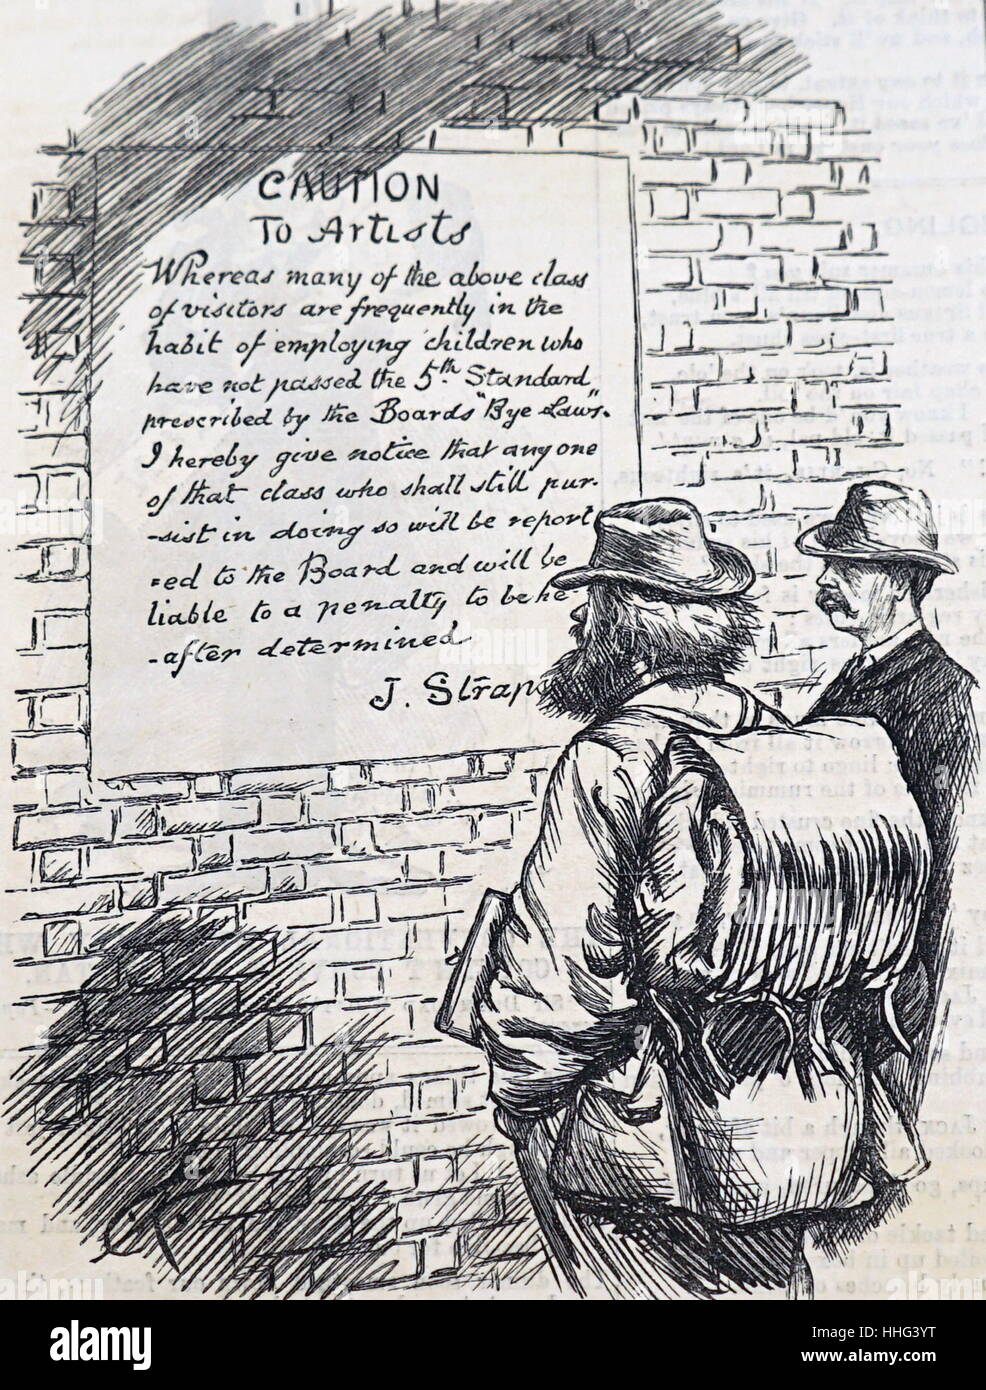 CAUTION
To Artists
Whereas many of the above class
of visitors are frequently in the
habit of employing children who
have not passed the 5th Standard
prescribed by the Boards "Bye Laws".
I hereby give notice that any one
of that class who shall still pur-
-sist in doing so will be report
=ed to the Board and will be
liable to a penalty to be he
-after determined
J. Straps
alamy
Image ID: HHG3YT
www.alamy.com